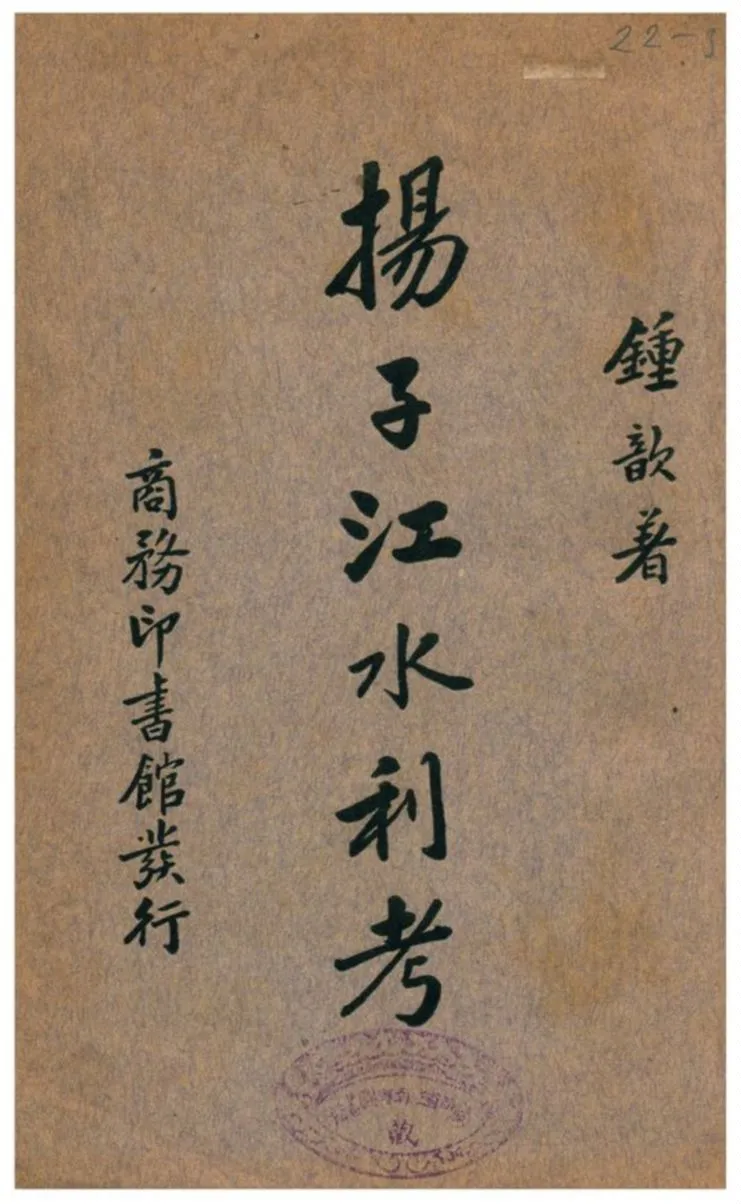 22-3
鍾歆著
揚子江水利考
商務印書館發行
藏